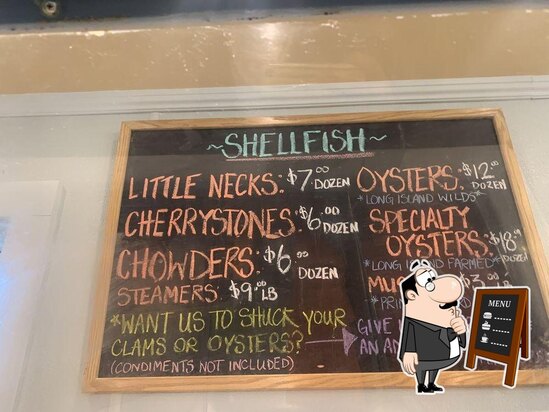 ~SHELLFISH~
LITTLE NECKS: $7.00 DOZEN
CHERRYSTONES: $6.00 DOZEN
CHOWDERS: $6.00 DOZEN
STEAMERS: $9.00 LB
*WANT US TO SHUCK YOUR
CLAMS OR OYSTERS?
(CONDIMENTS NOT INCLUDED)
OYSTERS: $12.00 DOZEN
*LONG ISLAND WILDS*
SPECIALTY
OYSTERS: $18.00 DOZEN
*LONG ISLAND FARMED*
$3.00
GIVE
AN
MENU